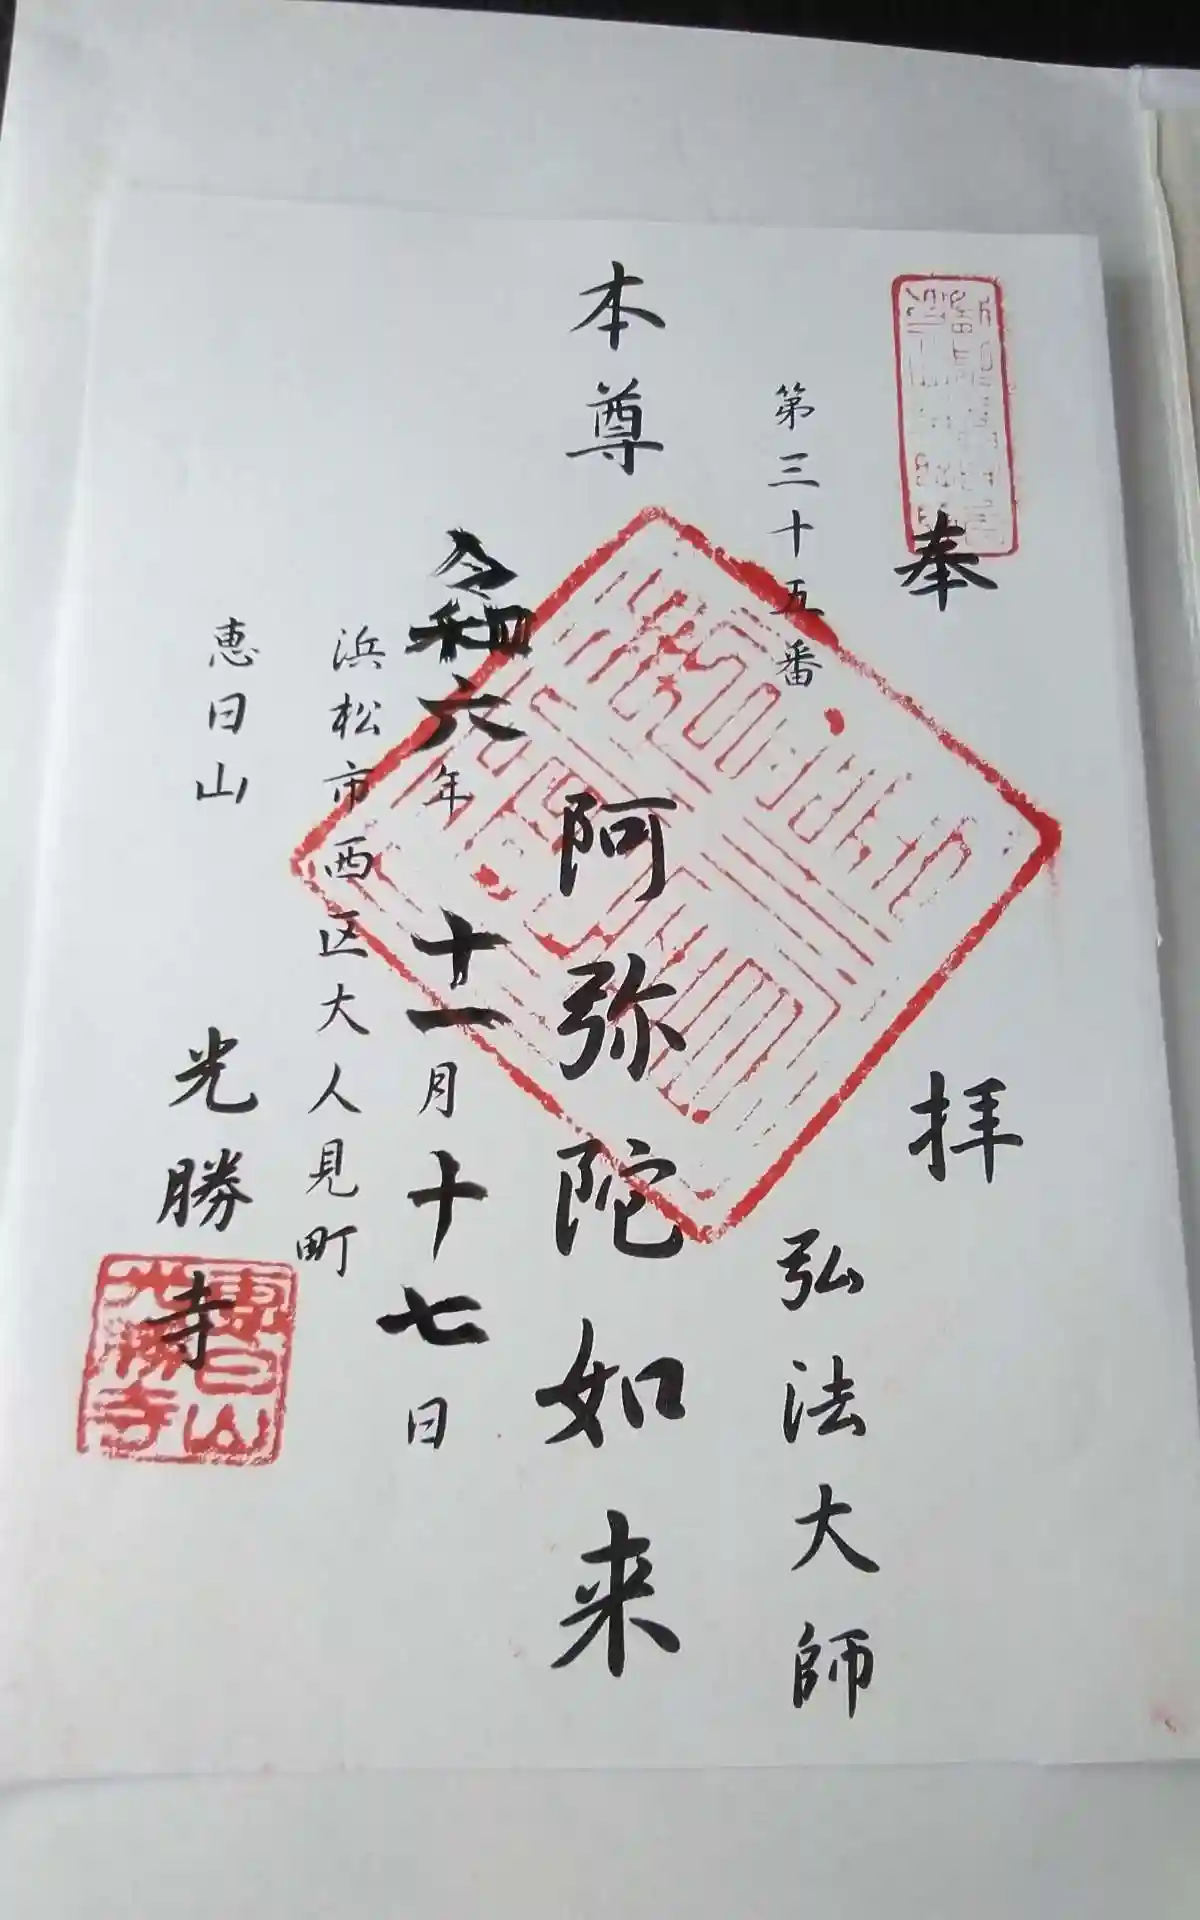 奉拝
第三十五番
弘法大師
本尊 阿弥陀如来
令和六年十一月十七日
浜松市西区大人見町
恵日山 光勝寺
恵日山
光勝寺